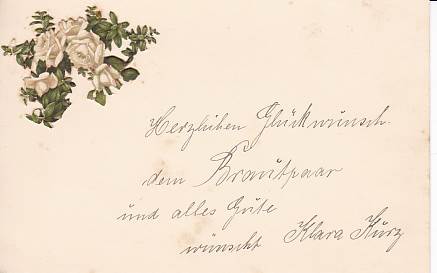 Herzlichen Glückwunsch
dem Brautpaar
und alles Gute
wünscht Klara Kurz